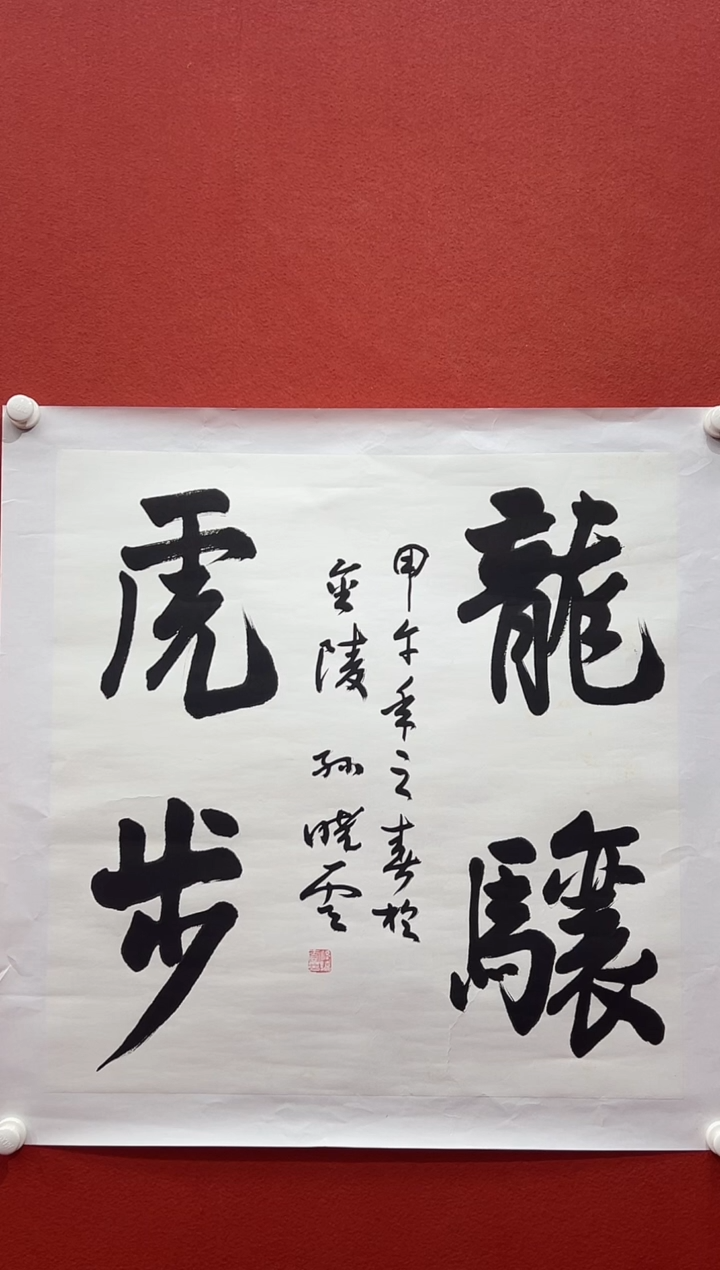 龍驤
虎步
甲午年之春於
金陵 孫曉雲